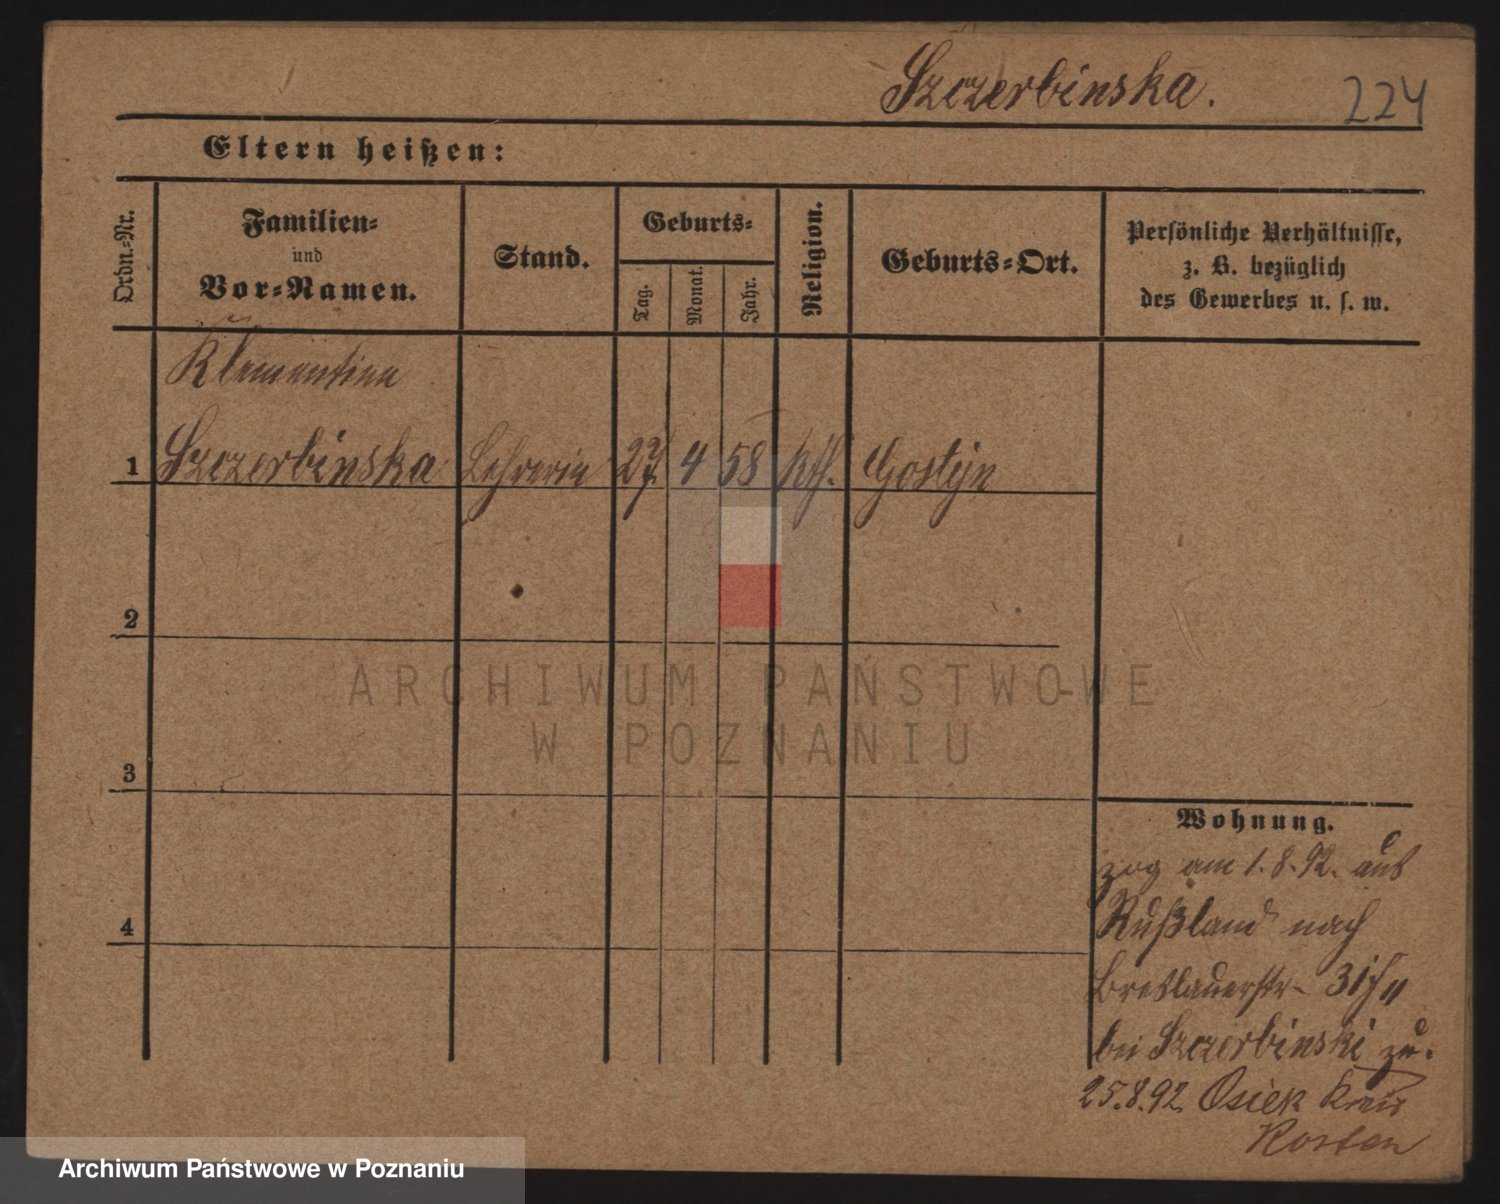 Szczerbinska.
224
Eltern heißen:
Ordn.-Nr.
Familien-
und
Vor-Namen.
Stand.
Geburts-
Tag.
Monat.
Jahr.
Religion.
Geburts-Ort.
Persönliche Verhältnisse,
z. B. bezüglich
des Gewerbes u. s. w.
Klementine
1 Szczerbinska Lehrerin 27 4 58 kth. Gostyn
2
3
4
Wohnung.
zog am 1.8.92. aus
Rußland nach
Breslauerstr. 31
bei Szczerbinski zu.
25.8.92 Osiek Kreis
Kosten
ARCHIWUM PAŃSTWOWE
W POZNANIU
Archiwum Państwowe w Poznaniu